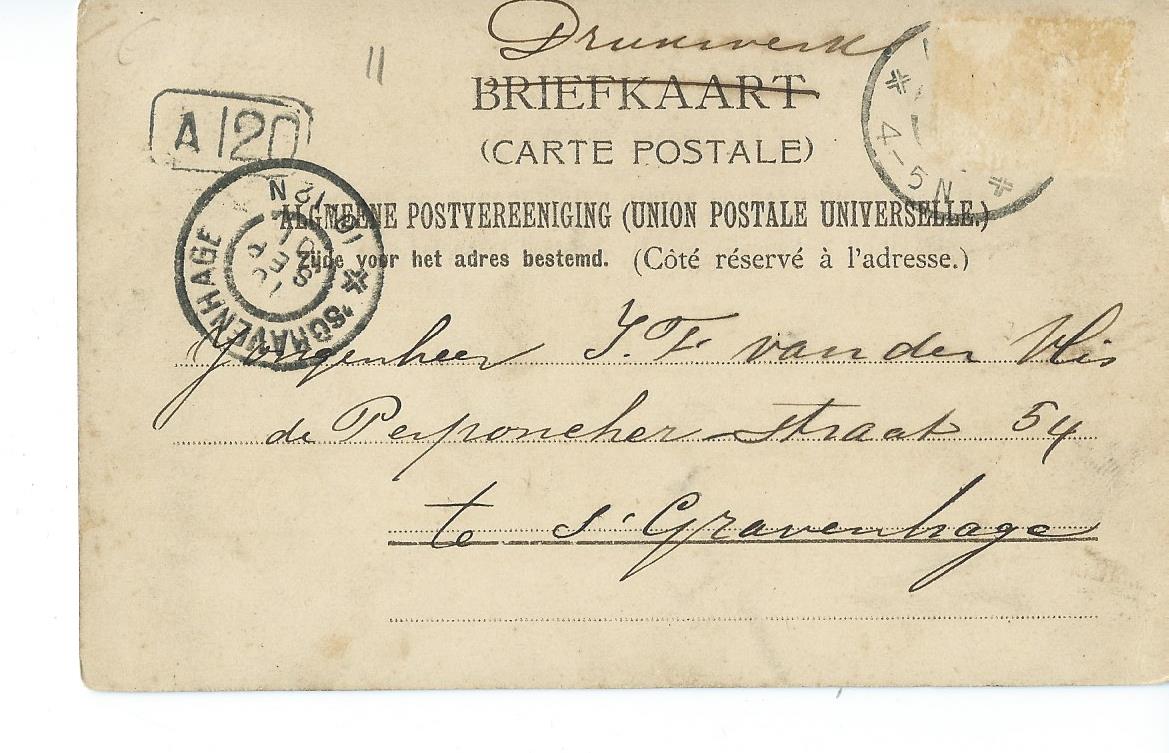 Drukwerk
BRIEFKAART
(CARTE POSTALE)
ALGMEENE POSTVEREENIGING (UNION POSTALE UNIVERSELLE.)
Zijde voor het adres bestemd. (Côté réservé à l'adresse.)
11
A 120
'SGRAVENHAGE
10 12N
SEP
4-5N
Jongenheer J. F. van der
de Perponcher straat 54
te s' Gravenhage